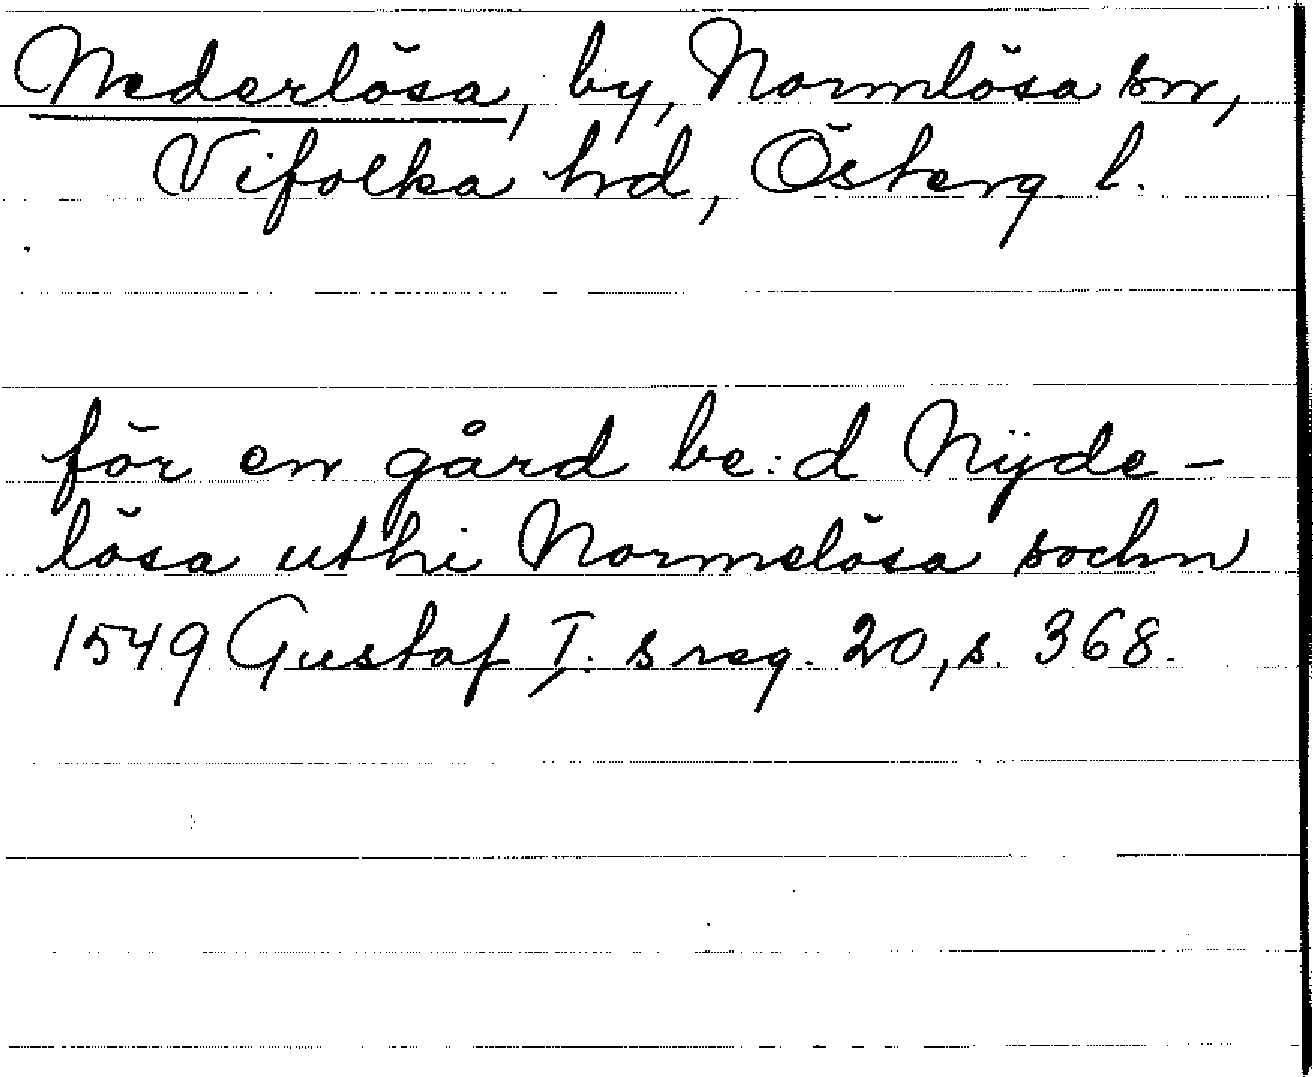 Nederlösa, by, Normlösa sn,
Vifolka hd, Österg l.
för en gård be:d Nÿde-
lösa uthi Normelösa sochn
1549 Gustaf I:s reg. 20, s. 368.